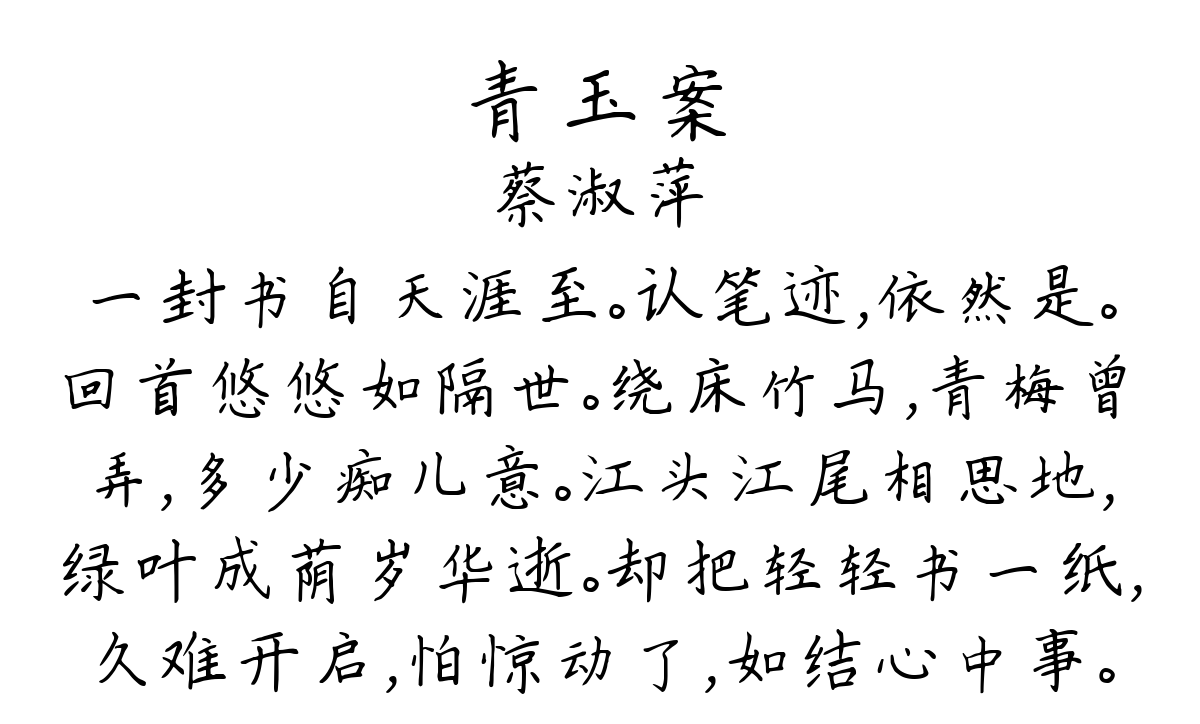 青玉案
蔡淑萍
一封书自天涯至。认笔迹,依然是。
回首悠悠如隔世。绕床竹马,青梅曾
弄,多少痴儿意。江头江尾相思地,
绿叶成荫岁华逝。却把轻轻书一纸,
久难开启,怕惊动了,如结心中事。